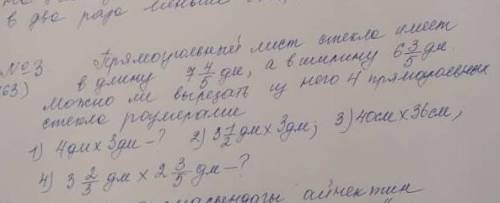 в два раза меньше
№3 Прямоугольный лист стекла имеет
63) в длину 7 4/5 дм, а в ширину 6 3/5 дм.
Можно ли вырезать из него 4 прямоугольных
стекла размерами
1) 4дм х 3дм - ? 2) 3 1/2 дм х 3дм; 3) 40см х 36см,
4) 3 2/3 дм х 2 3/5 дм - ?
айнектин